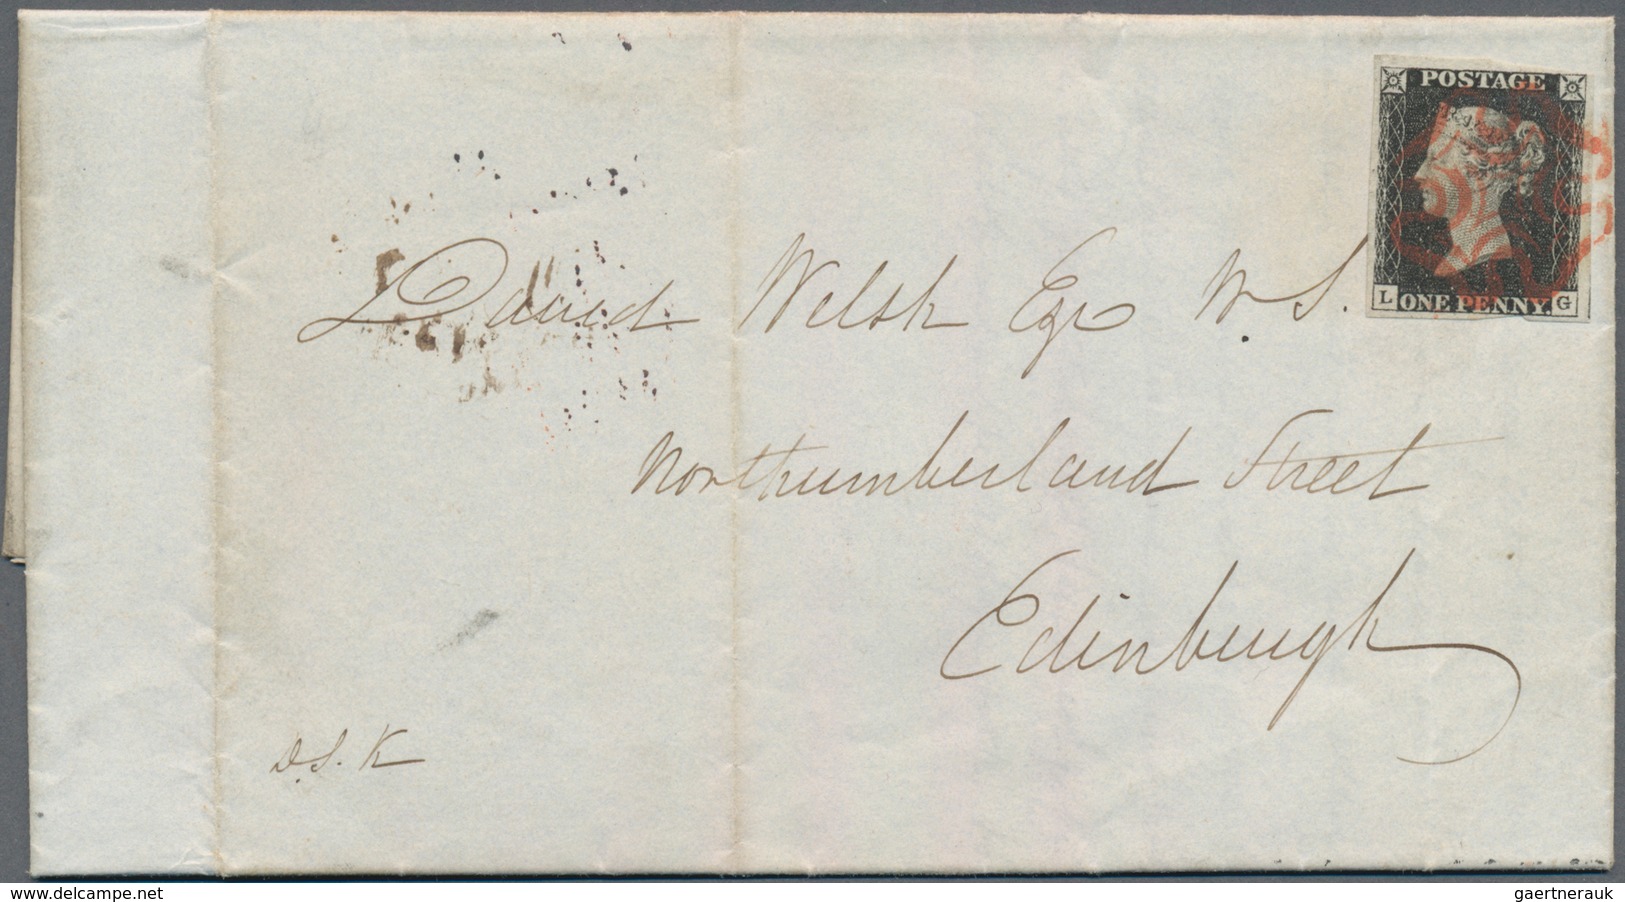 POSTAGE
L ONE PENNY. G
David Welsh Esqr W. S.
Northumberland Street
Edinburgh
D. S. K
www.delcampe.net
gaertnerauk